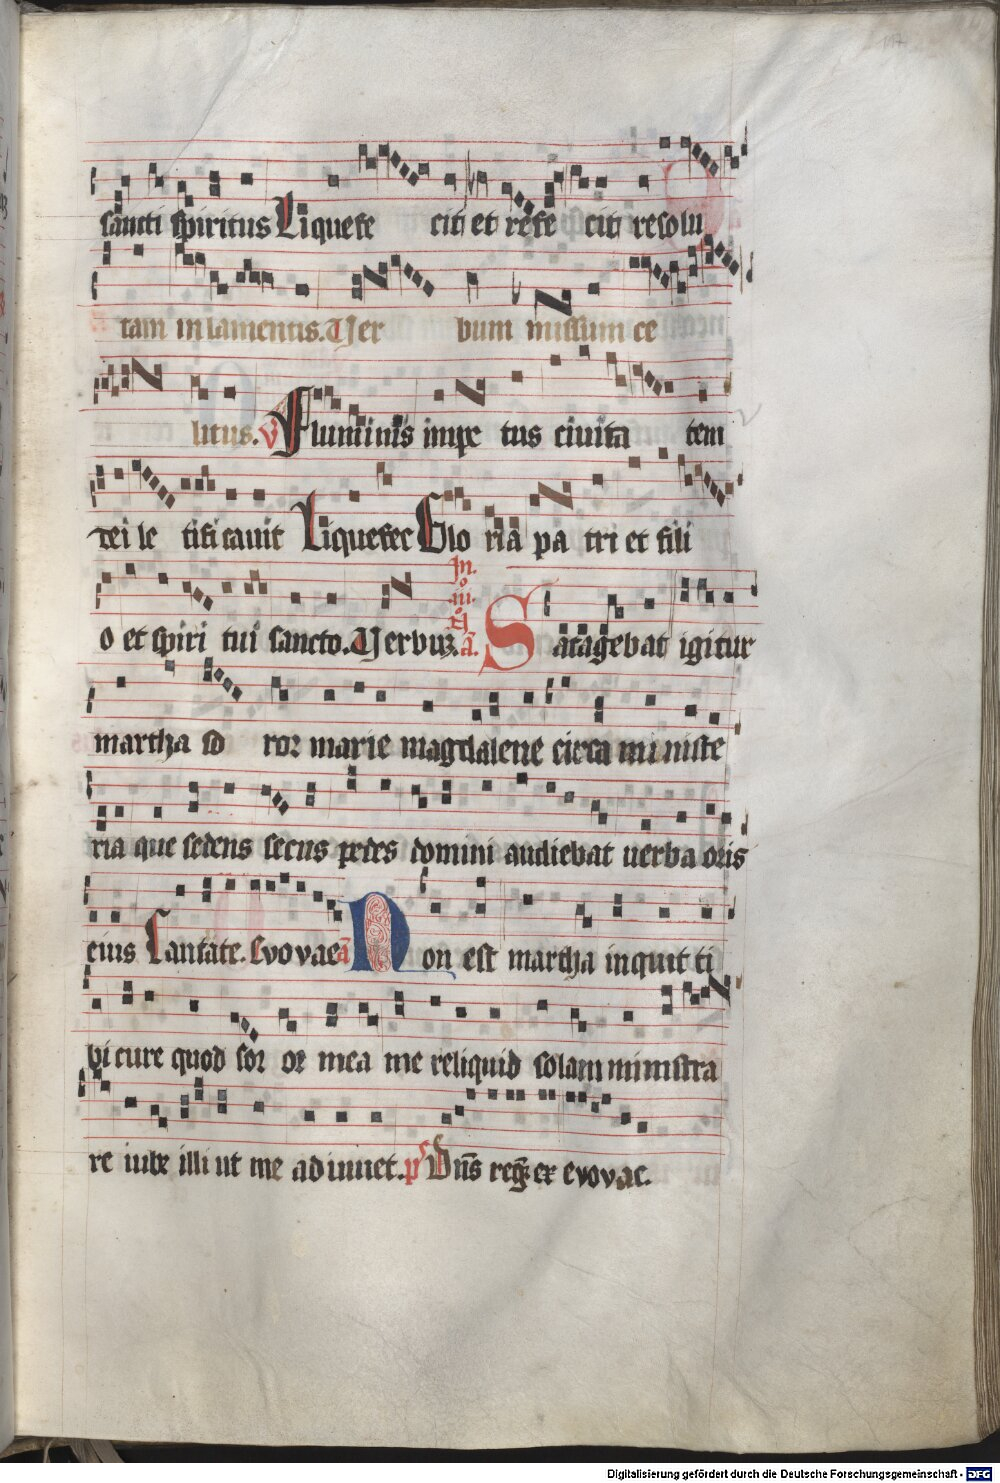 117
sancti spiritus Liquefe cit et refe cit resolu
tam in lamentis. Uer bum missum ce
litus. V Fluminis impe tus ciuita tem
dei le tificauit Liquefec Glo ria pa tri et fili
In.
o et spiri tui sancto. Uerbum. a. Satagebat igitur
martha so ror marie magdalene circa ministe
ria que sedens secus pedes domini audiebat uerba oris
eius Cantate. Evovae a Non est martha inquit ti
bi cure quod sor or mea me reliquid solam ministra
re iube illi ut me adiuuet. ps Dns reg. ex evovae.
Digitalisierung gefördert durch die Deutsche Forschungsgemeinschaft - DFG